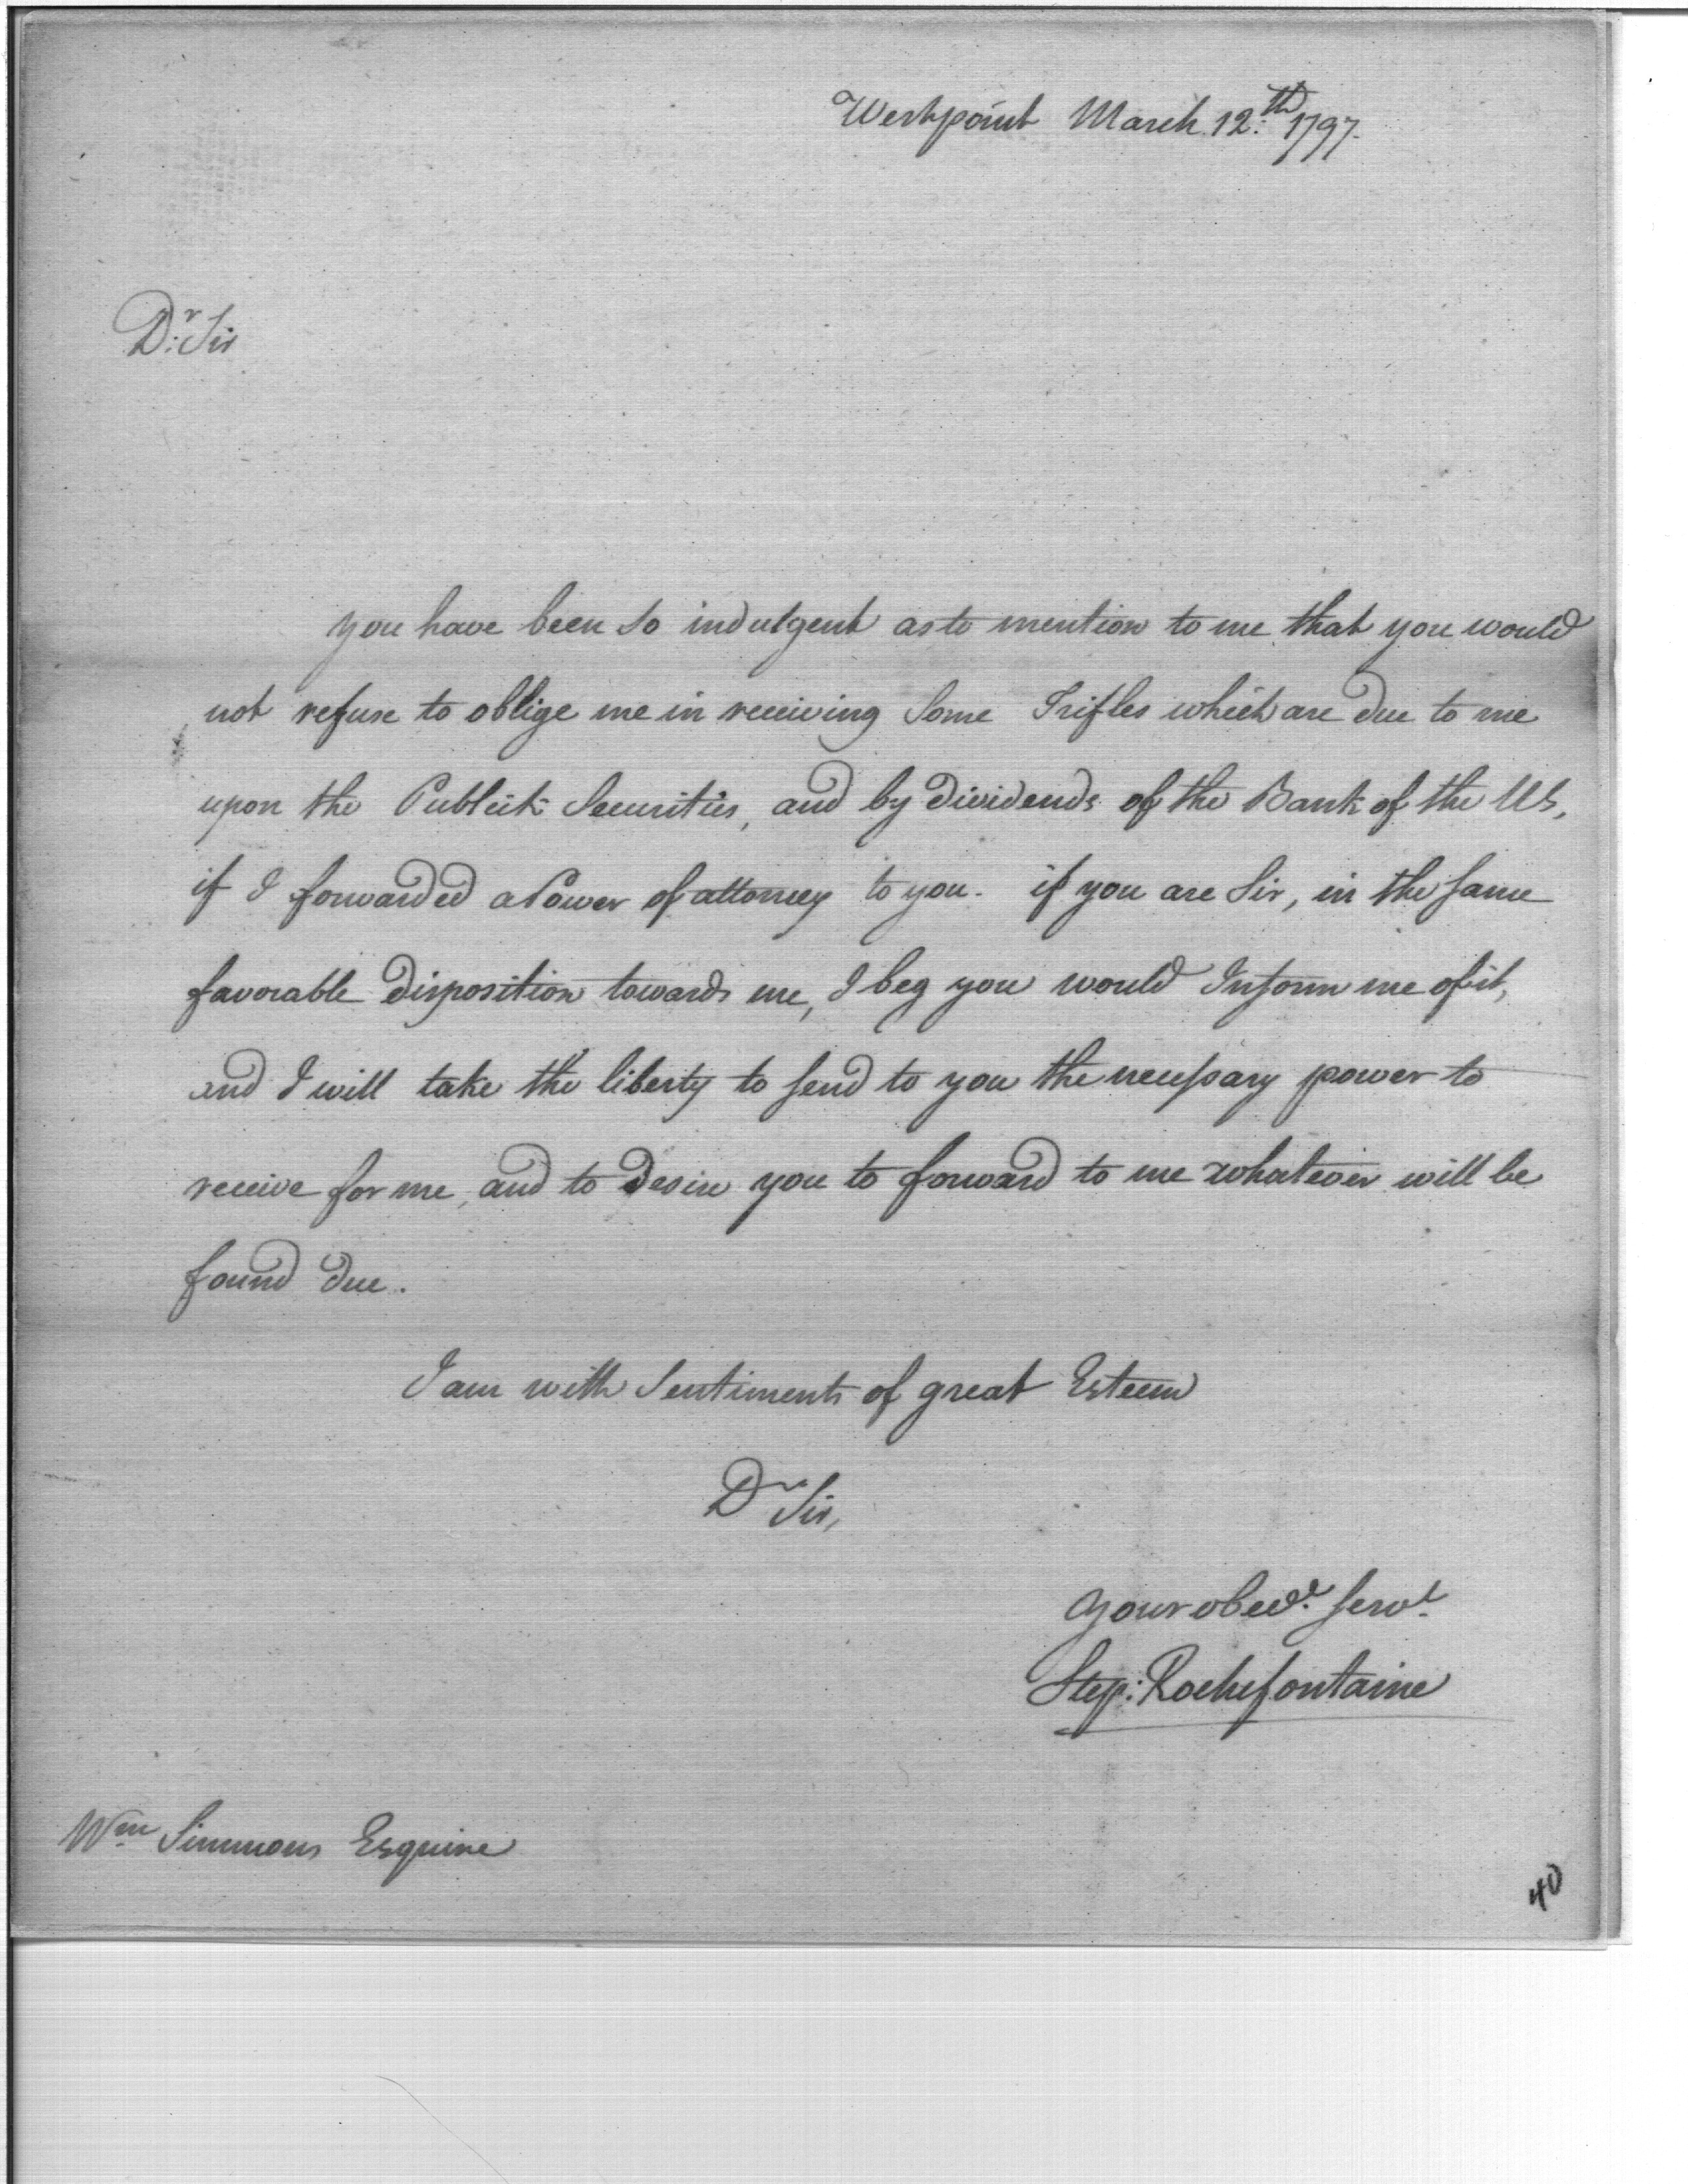 Westpoint March 12:th 1797.
Dr: Sir
you have been so indulgent as to mention to me that you would
not refuse to oblige me in receiving Some Trifles which are due to me
upon the Publick Securities, and by dividends of the Bank of the US,
if I forwarded a Power of attorney to you. if you are Sir, in the same
favorable disposition towards me, I beg you would Inform me of it,
and I will take the liberty to send to you the necessary power to
receive for me, and to desire you to forward to me whatever will be
found due.
I am with Sentiments of great Esteem
Dr Sir,
your obedt. servt.
Step: Rochefontaine
Wm Simmons Esquire
40